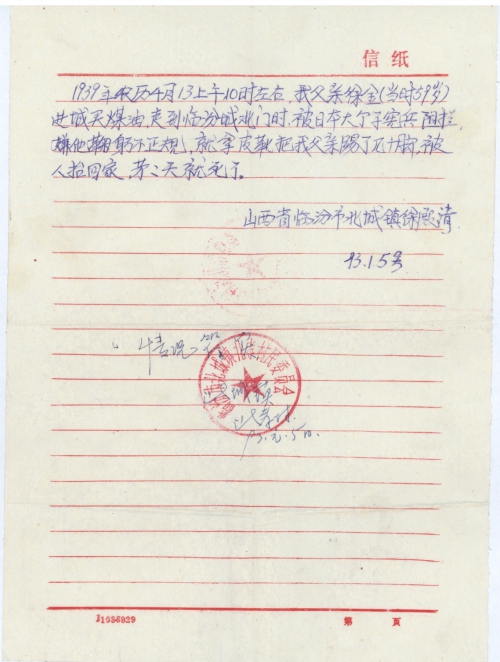 信纸
1939年农历4月13上午10时左右，我父亲徐金(当时59岁)
进城买煤油，走到临汾城北门时，被日本大个子宪兵阻拦，
嫌他鞠躬不正规，就拿皮靴把我父亲踢了几十脚，被
人抬回家，第二天就死了。
山西省临汾市北城镇徐
93.1.5号
情况
委员会
J1086929
第 页